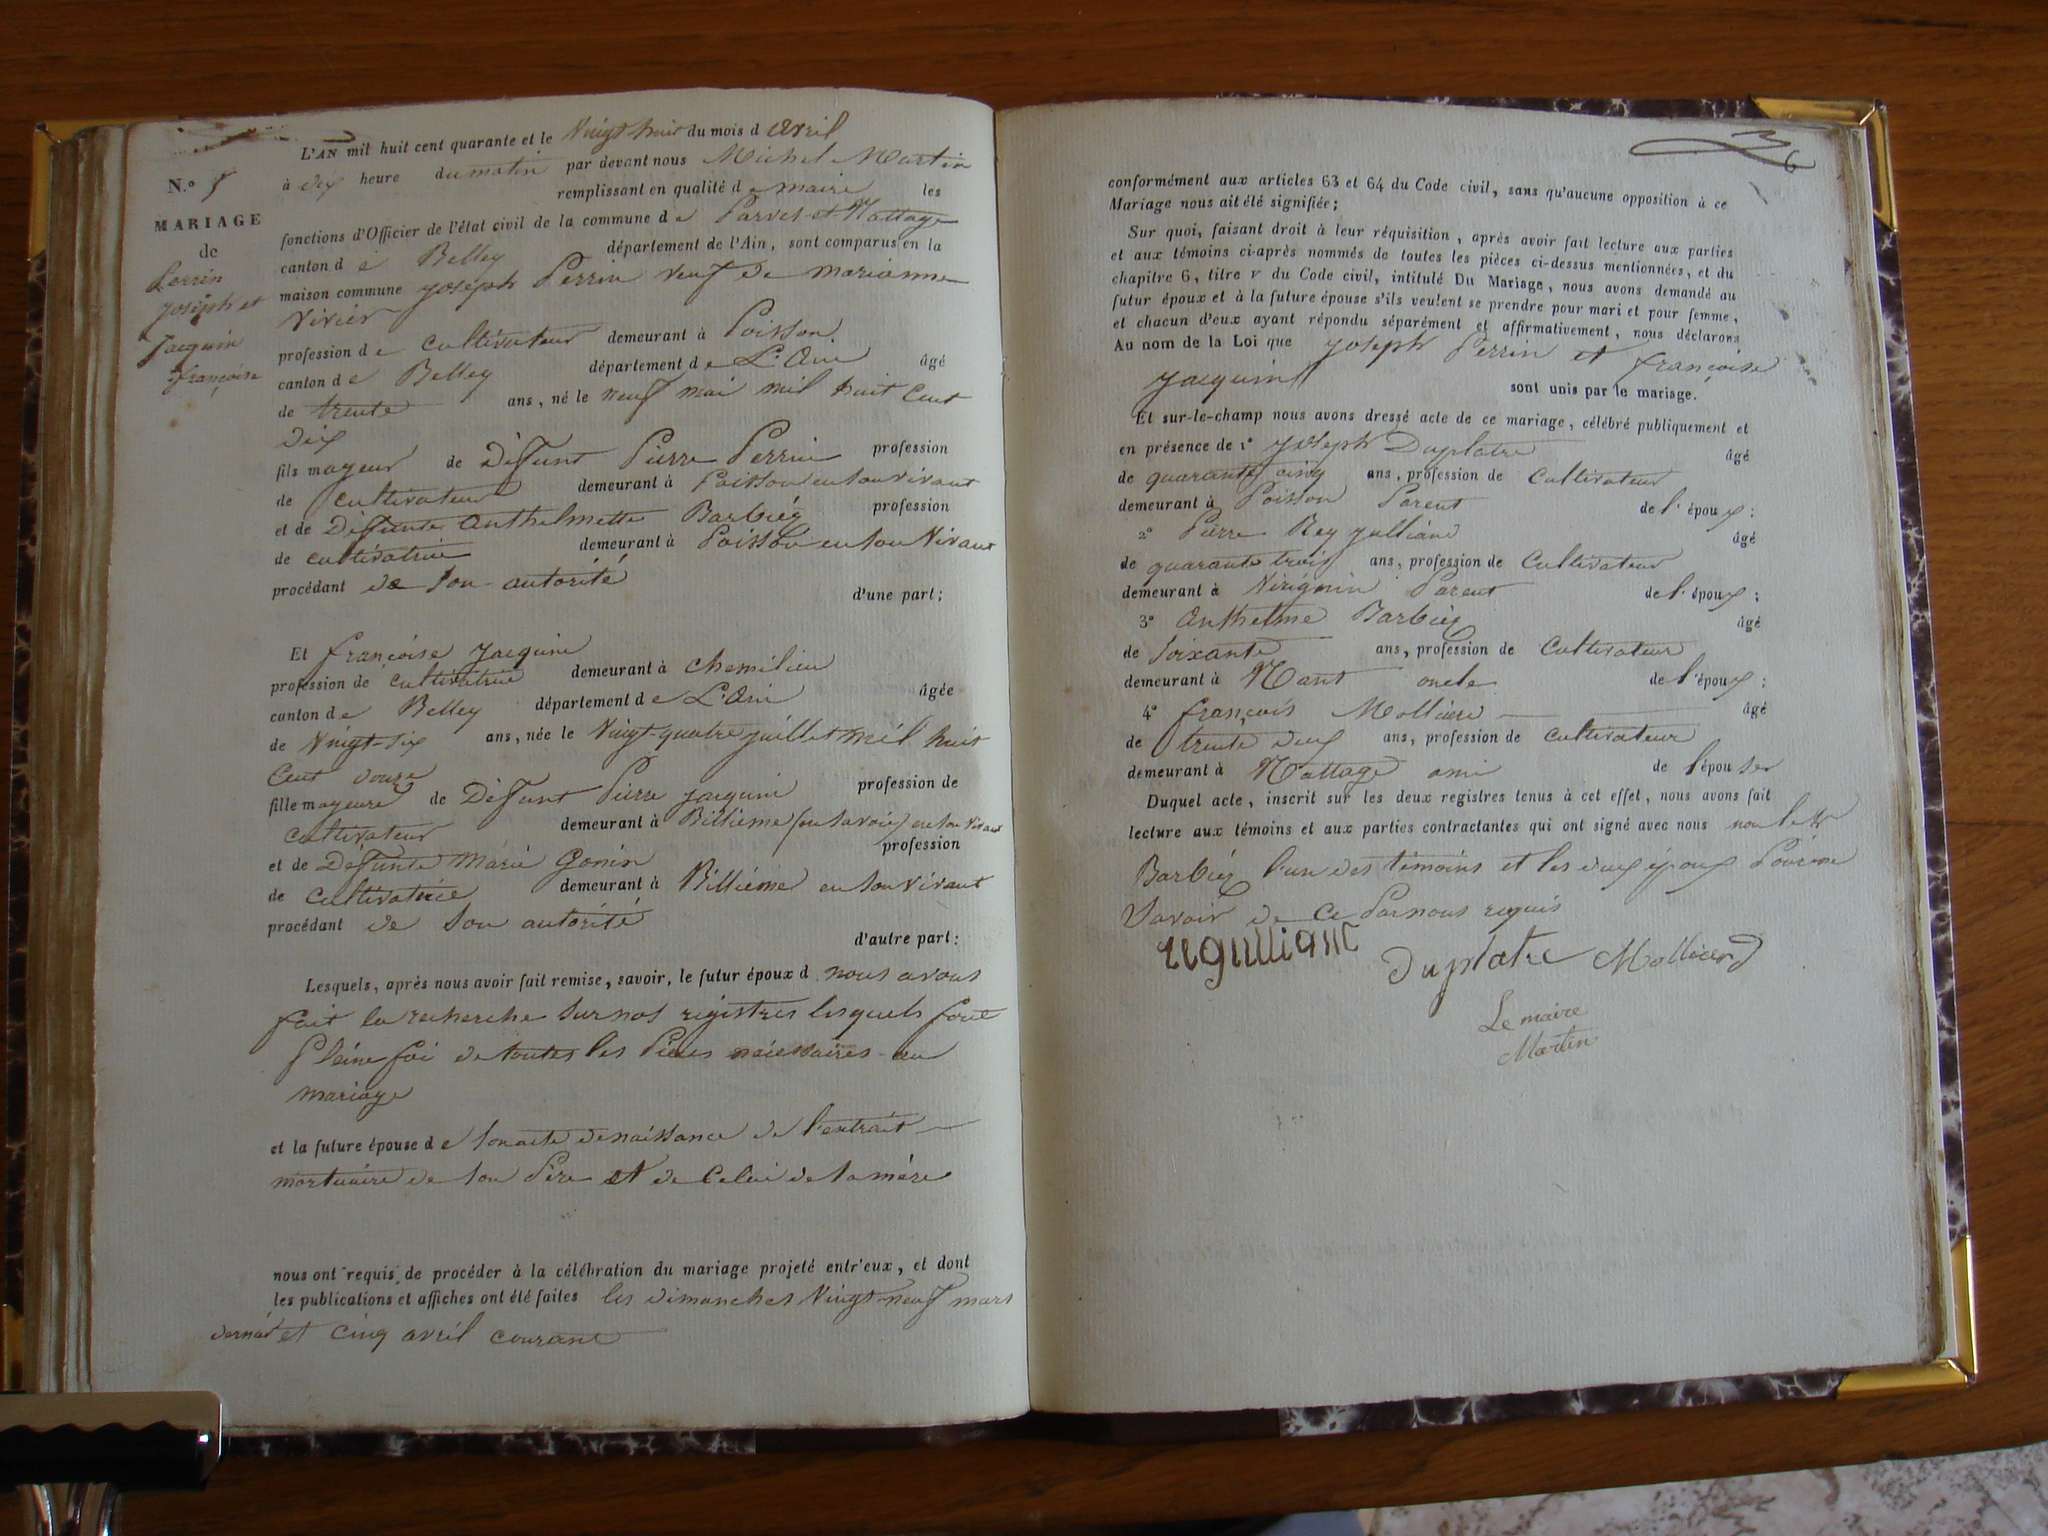 L'AN mil huit cent quarante et le Vingt huit du mois d avril
N.º
à dix heure du matin par devant nous Michel Martin
remplissant en qualité de maire les
MARIAGE
fonctions d'Officier de l'état civil de la commune de Parves et Nattage
de
canton de Belley département de l'Ain, sont comparus en la
Perrin
maison commune joseph Perrin veuf de marianne
joseph et
Vivier
jacquin
profession de cultivateur demeurant à Poisson
françoise
canton de Belley département de L'Ain âgé
de trente ans, né le neuf mai mil huit Cent
dix
fils mayeur de Défunt Pierre Perrin profession
de cultivateur demeurant à Poisson en son vivant
et de Défunte Anthelmette Barbiéz profession
de cultivatrice demeurant à Poisson en son Vivant
procédant de son autorité
d'une part;
Et françoise jacquin
profession de cultivatrice demeurant à chemilieu
canton de Belley département de L'Ain âgée
de Vingt-six ans, née le Vingt-quatre juillet mil huit
Cent douze
fille mayeure de Défunt Pierre jacquin profession de
cultivateur demeurant à Billième (en Savoie) en son vivant
et de Défunte Marie Gonin profession
de Cultivatrice demeurant à Billième en son vivant
procédant de son autorité
d'autre part:
Lesquels, après nous avoir fait remise, savoir, le futur époux d nous avons
fait la recherche sur nos registres lesquels font
Pleine foi de toutes les Pièces nécessaires au
mariage
et la future épouse de son acte de naissance de l'extrait
mortuaire de son Père et de Celui de sa mère
nous ont requis de procéder à la célébration du mariage projeté entr'eux, et dont
les publications et affiches ont été faites les dimanches Vingt-neuf mars
dernier et cinq avril courant
conformément aux articles 63 et 64 du Code civil, sans qu'aucune opposition à ce
Mariage nous ait été signifiée;
Sur quoi, faisant droit à leur réquisition, après avoir fait lecture aux parties
et aux témoins ci-après nommés de toutes les pièces ci-dessus mentionnées, et du
chapitre 6, titre v du Code civil, intitulé Du Mariage, nous avons demandé au
futur époux et à la future épouse s'ils veulent se prendre pour mari et pour femme,
et chacun d'eux ayant répondu séparément et affirmativement, nous déclarons
Au nom de la Loi que joseph Perrin et françoise
jacquin sont unis par le mariage.
Et sur-le-champ nous avons dressé acte de ce mariage, célébré publiquement et
en présence de 1º joseph Duplatre âgé
de quarante cinq ans, profession de Cultivateur
demeurant à Poisson Parent de l'époux:
2º Pierre Rey jullian âgé
de quarante trois ans, profession de Cultivateur
demeurant à Virignin Parent de l'époux;
3º Anthelme Barbiéz âgé
de soixante ans, profession de Cultivateur
demeurant à Nant oncle de l'époux;
4º françois Mollierd âgé
de trente deux ans, profession de cultivateur
demeurant à Nattage ami de l'épouse
Duquel acte, inscrit sur les deux registres tenus à cet effet, nous avons fait
lecture aux témoins et aux parties contractantes qui ont signé avec nous non le
Barbiéz l'un des témoins et les deux époux Pour ne
Savoir de Ce Par nous requis
Duplatre Mollierd
Le maire
Martin